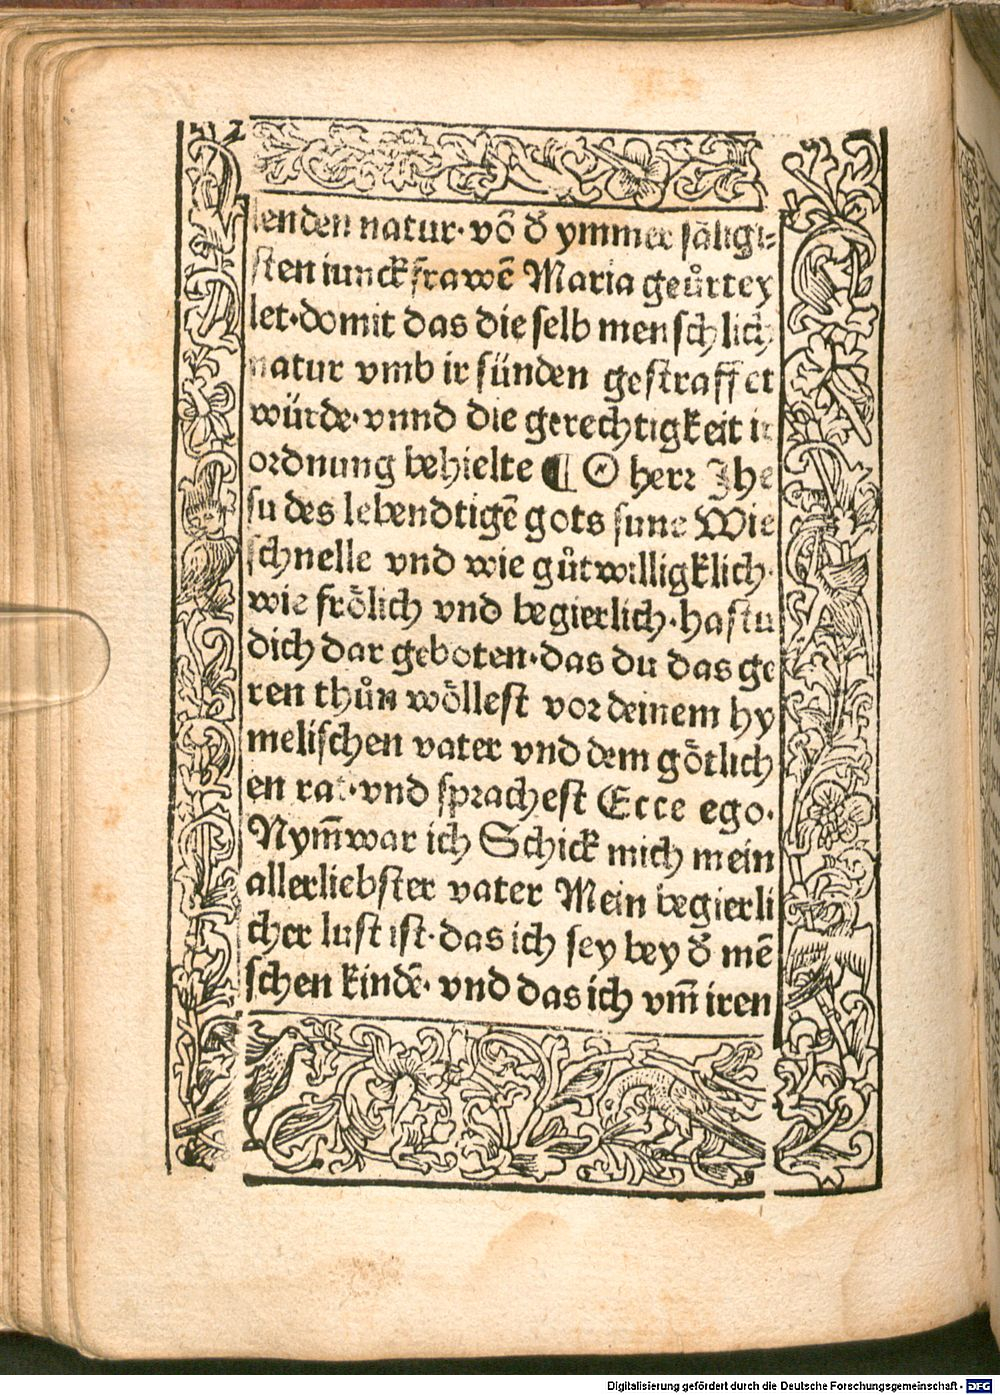 lenden natur· võ d̃ ymmer säligi⸗
sten iunckfrawẽ Maria geůrtey
let·domit das die selb menschlich
natur vmb ir sünden gestraffet
würde·vnnd die gerechtigkeit ir
ordnung behielte ¶ O herr Jhe
su des lebendtigẽ gots sune Wie
schnelle vnd wie gůtwilligklich·
wie frölich vnd begierlich·hastu
dich dar geboten·das du das ge
ren thůn wöllest vor deinem hy
melischen vater vnd dem götlich
en rat·vnd sprachest Ecce ego·
Nym̃war ich Schick mich mein
allerliebster vater Mein begierli
cher lust ist·das ich sey bey d̃ mẽ
schen kindẽ·vnd das ich vm̃ iren
Digitalisierung gefördert durch die Deutsche Forschungsgemeinschaft - DFG